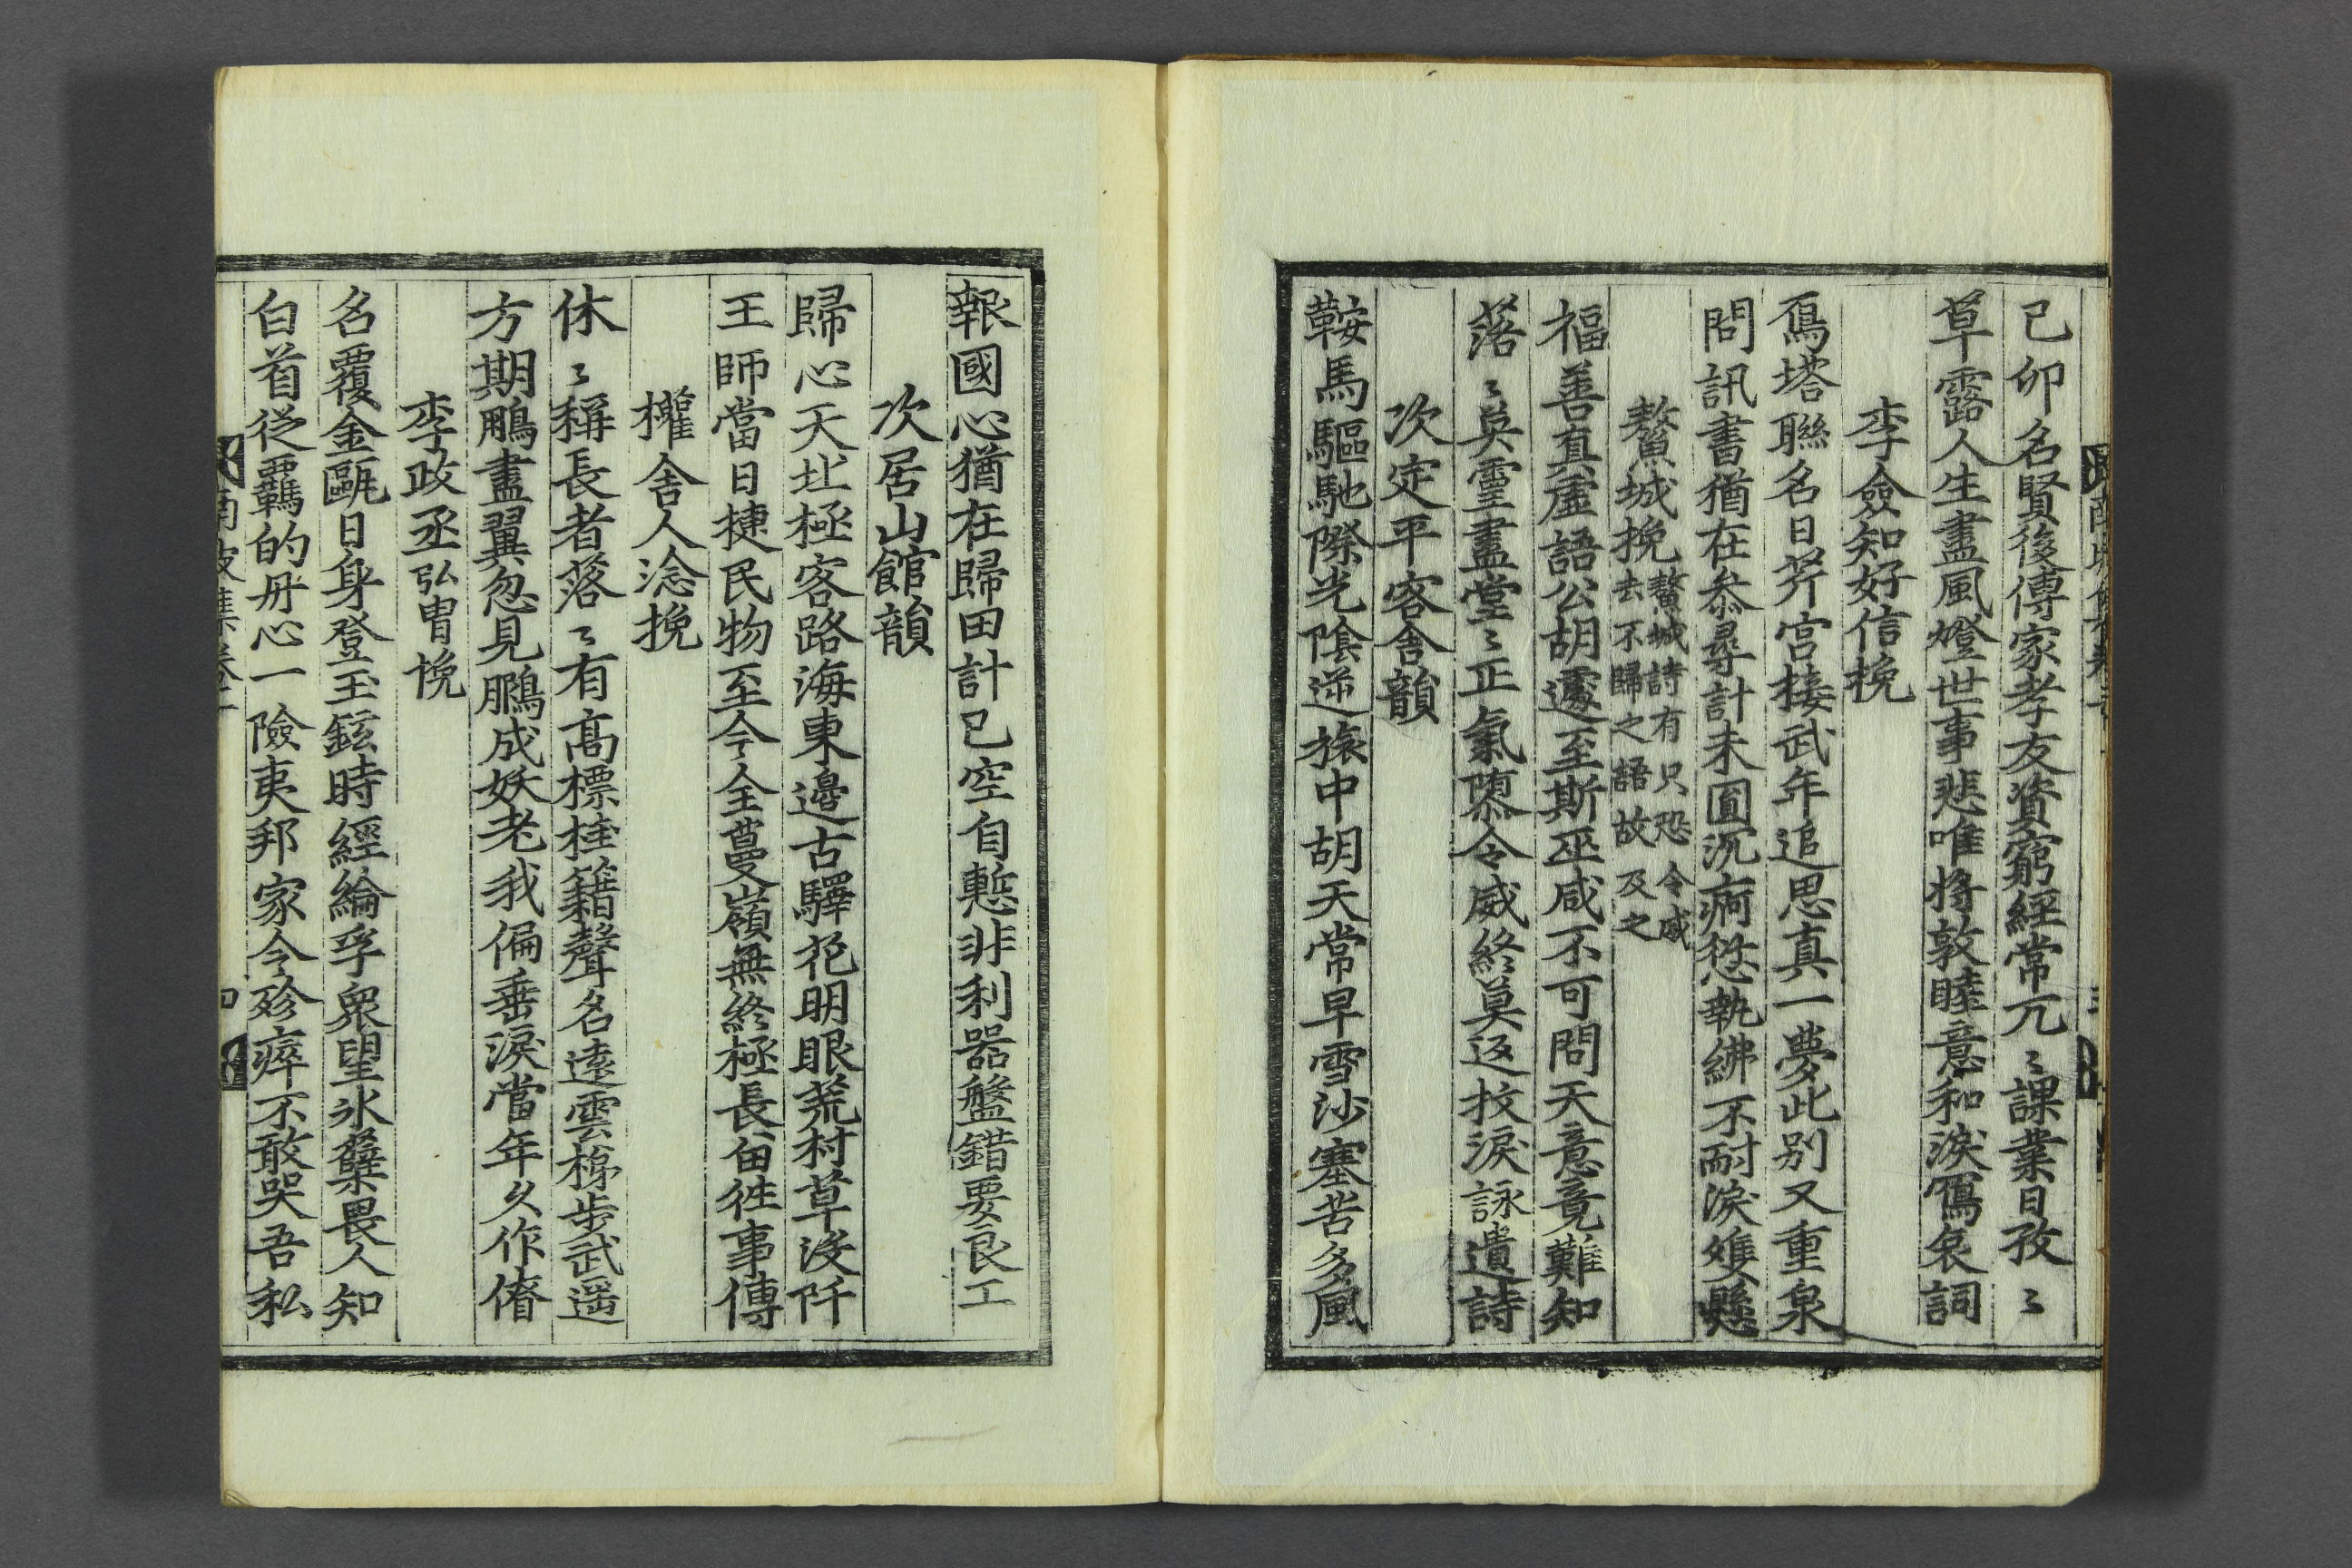 己卯名賢後傳家孝友資窮經常兀〻課業日孜〻
草露人生盡風燈世事悲唯将敦睦意和淚寫哀詞
李僉知好信挽
鴈塔聯名日芹宮接武年追思真一夢此别又重泉
問訊書猶在叅尋計未圓沉痾愆執紼不耐淚雙懸
鰲城挽鰲城詩有只恐令威
去不歸之語故及之
福善真虛語公胡遽至斯巫咸不可問天意竟難知
落〻英靈盡堂〻正氣隳令威終莫返抆淚詠遺詩
次定平客舍韻
鞍馬驅馳際光陰逆旅中胡天常早雪沙塞苦多風
報國心猶在歸田計已空自慙非利器盤錯要良工
次居山館韻
歸心天北極客路海東邊古驛花明眼荒村草沒阡
王師當日捷民物至今全蔓嶺無終極長留徃事傳
權舍人淰挽
休〻稱長者落〻有高標桂籍聲名遠雲梯步武遥
方期鵬盡翼忽見鵩成妖老我偏垂淚當年久作僚
李政丞弘冑挽
名覆金甌日身登玉鉉時經綸孚衆望氷蘗畏人知
白首從羈的丹心一險夷邦家今殄瘁不敢哭吾私
南坡集卷二
四